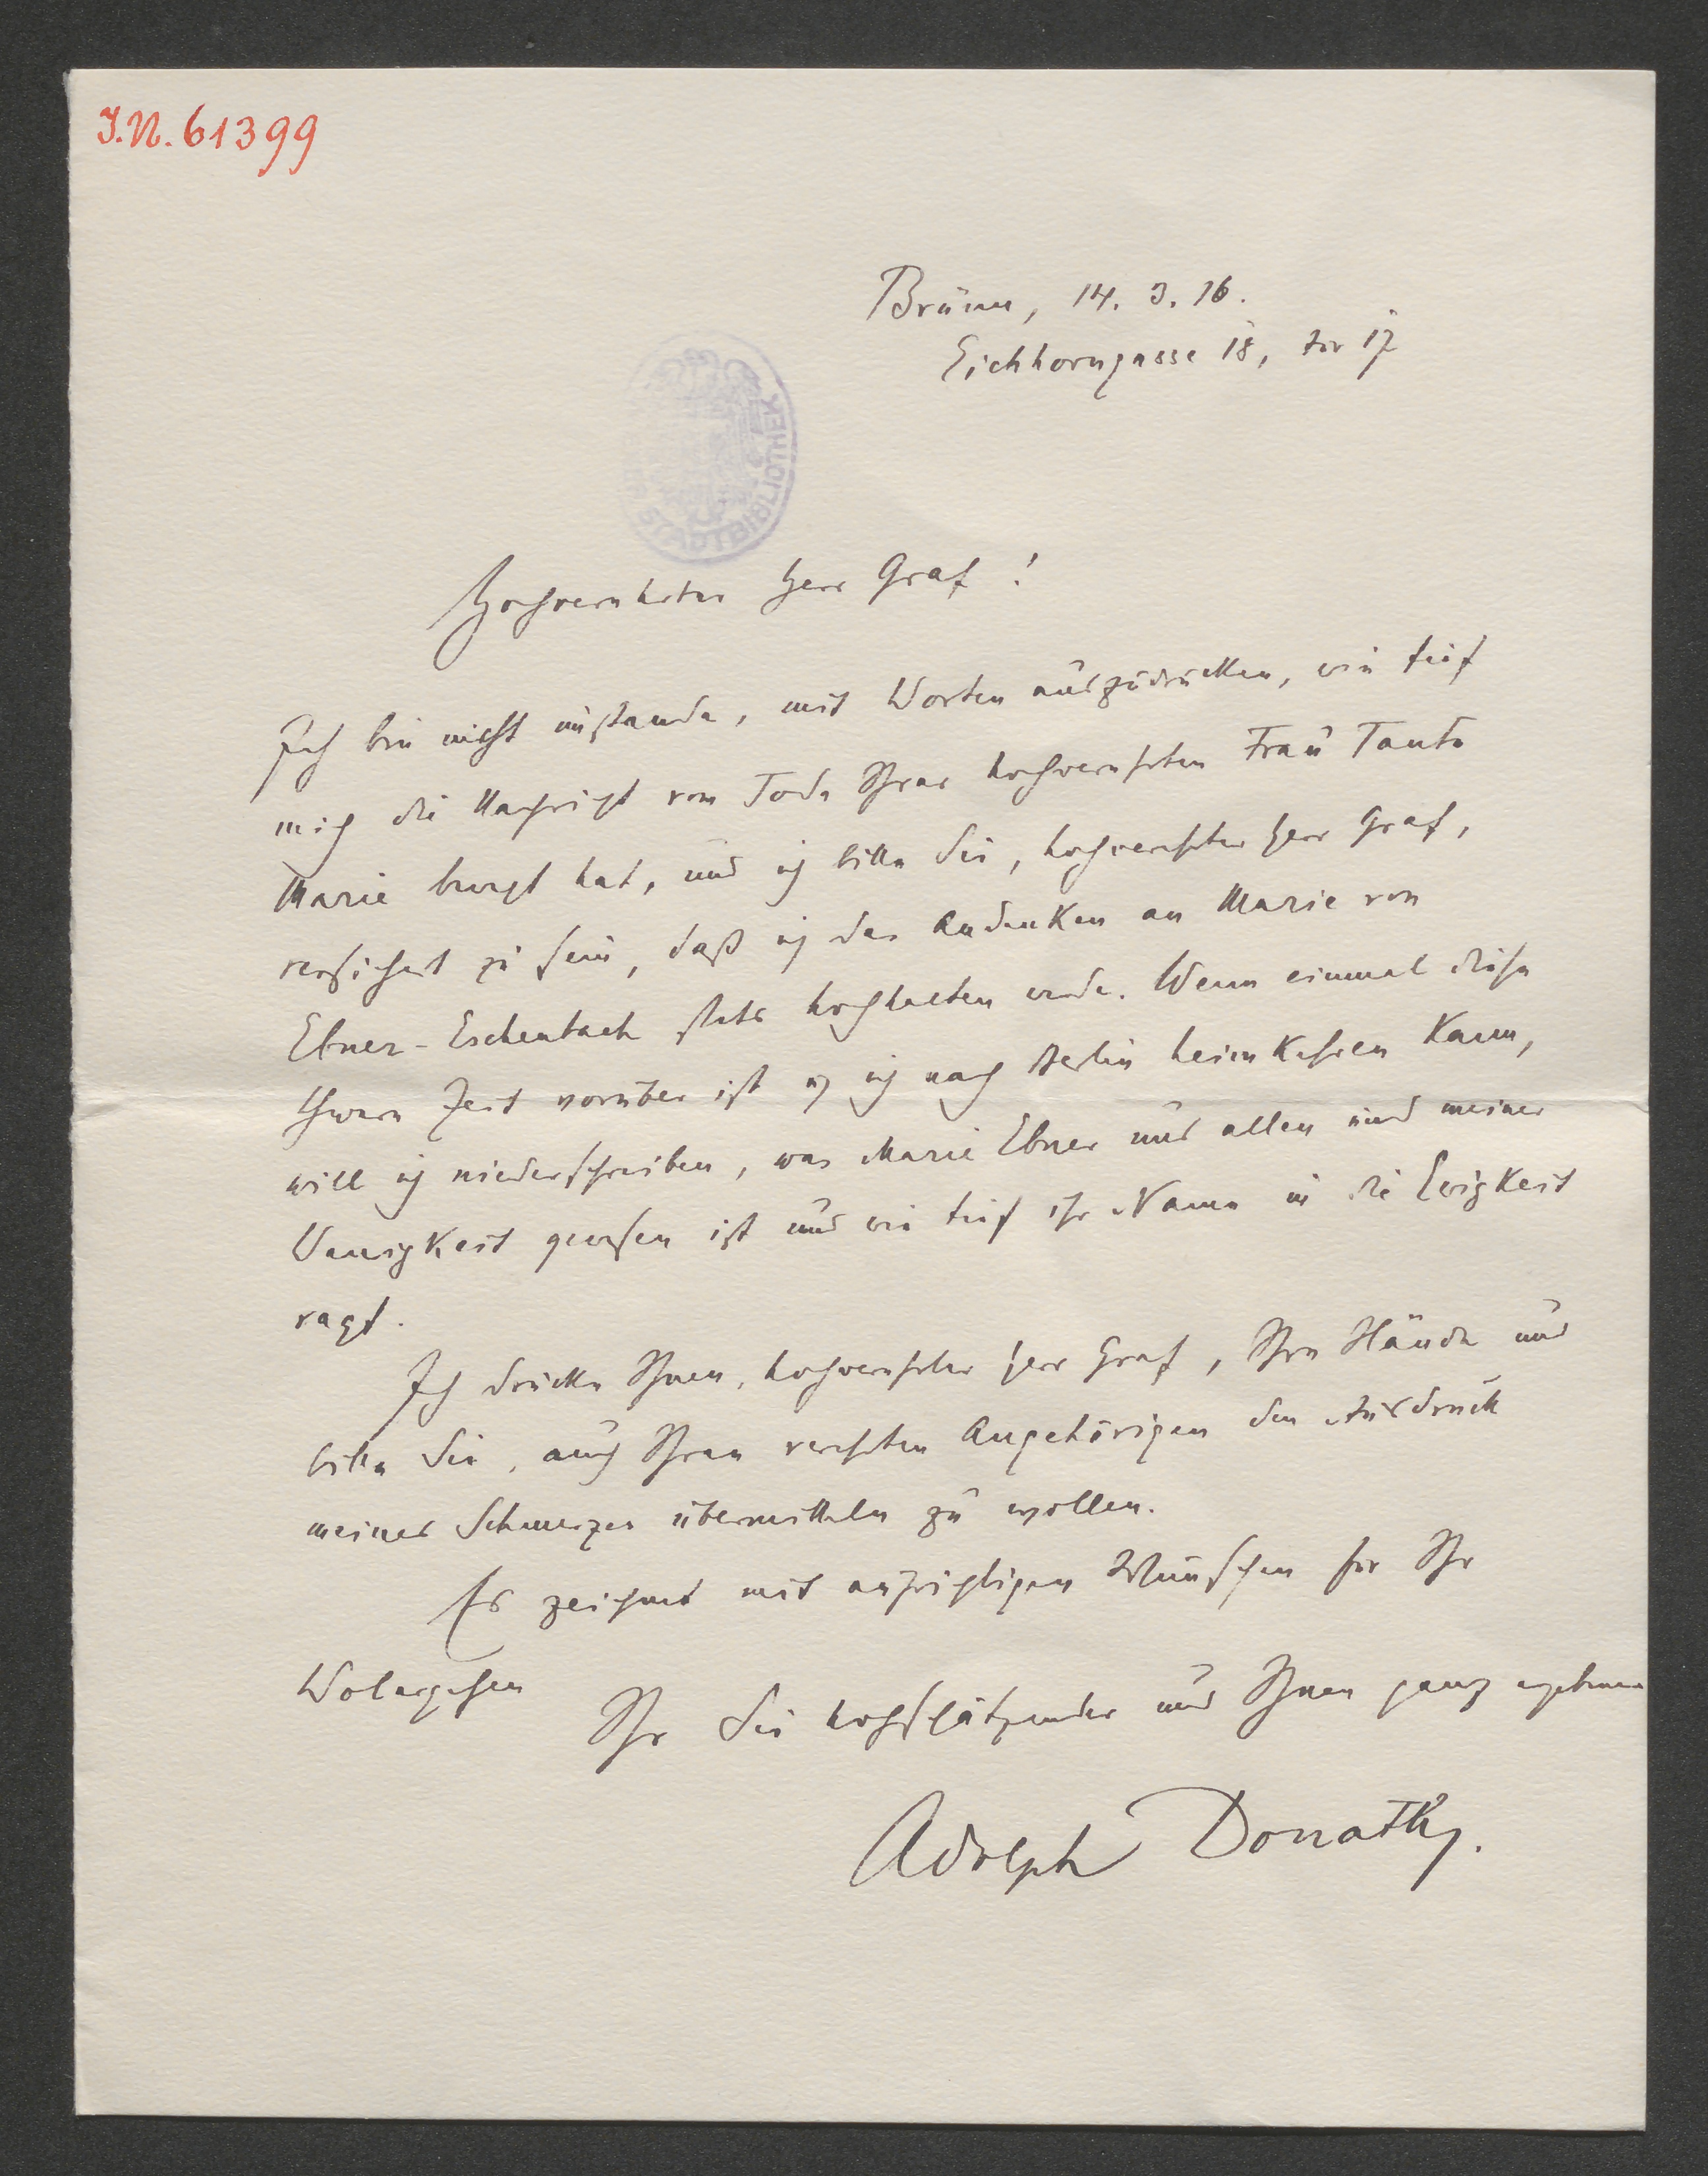 I.N. 61399
Brünn, 14. 3. 16.
Eichhorngasse 18, Tür 17
STADTBIBLIOTHEK
Hochverehrter Herr Graf!
Ich bin nicht imstande, mit Worten auszudrücken, wie tief
mich die Nachricht vom Tode Ihrer hochverehrten Frau Tante
Marie bewegt hat, und ich bitte Sie, hochverehrter Herr Graf,
versichert zu sein, daß ich das Andenken an Marie von
Ebner-Eschenbach stets hochhalten werde. Wenn einmal diese
schwere Zeit vorüber ist u ich nach Berlin heimkehren kann,
will ich niederschreiben, was Marie Ebner uns allen und meiner
Wenigkeit gewesen ist und wie tief ihr Name in die Ewigkeit
ragt.
Ich drücke Ihnen, hochverehrter Herr Graf, Ihre Hände und
bitte Sie, auch Ihren verehrten Angehörigen den Ausdruck
meines Schmerzes übermitteln zu wollen.
Es zeichnet mit aufrichtigen Wünschen für Ihr
Wolergehen
Ihr Sie hochschätzender und Ihnen ganz ergebener
Adolph Donath